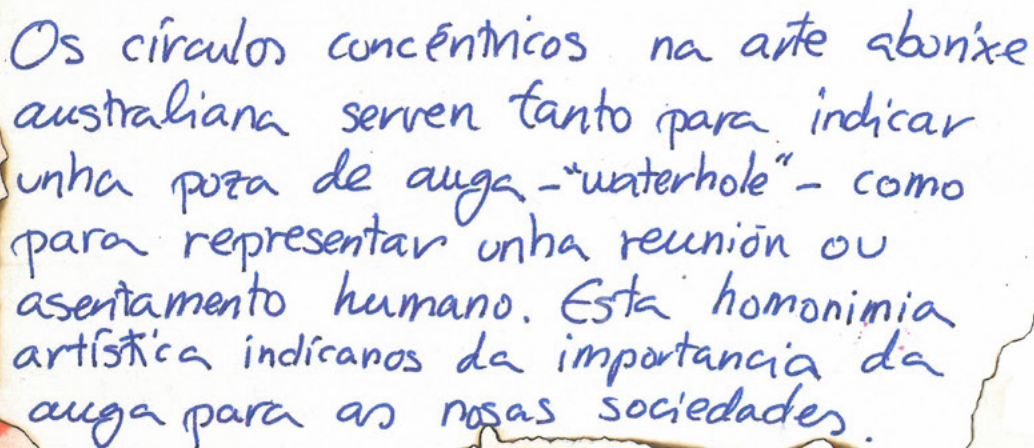 Os círculos concéntricos na arte aborixe
australiana serven tanto para indicar
unha poza de auga -"waterhole"- como
para representar unha reunión ou
asentamento humano. Esta homonimia
artística indícanos da importancia da
auga para as nosas sociedades.